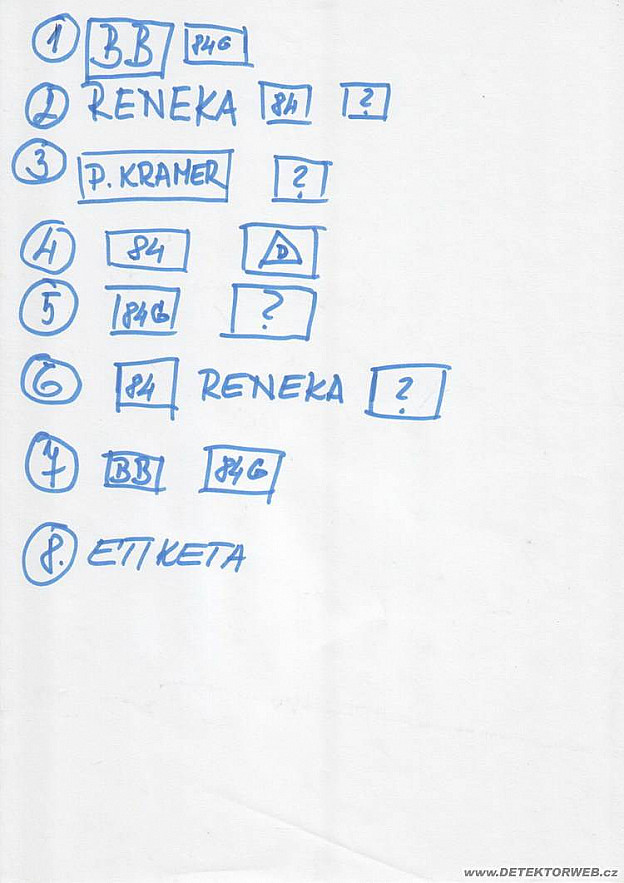 1 BB 84G
2 RENEKA 84 ?
3 P. KRAMER ?
4 84 D
5 84G ?
6 84 RENEKA ?
7 BB 84G
8. ETIKETA
www.DETEKTORWEB.cz